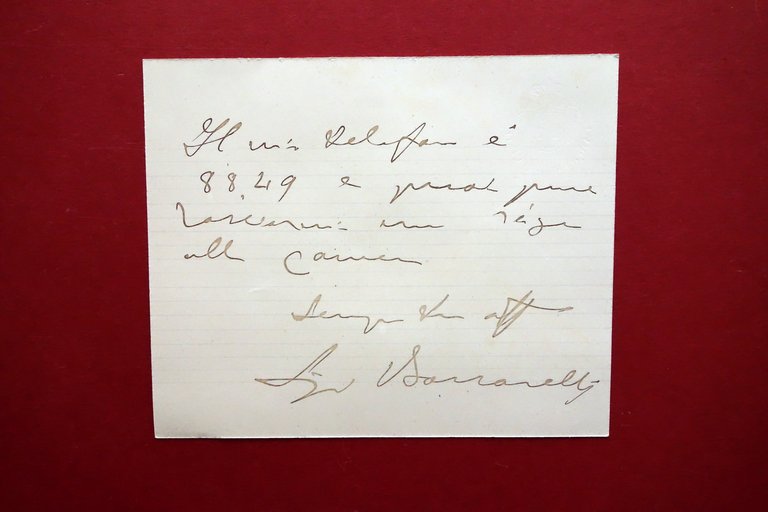 Il mio telefon è
88.49 e puoi pure
lasciarmi un
alla Camera
Sempre tuo aff
Barzanelli